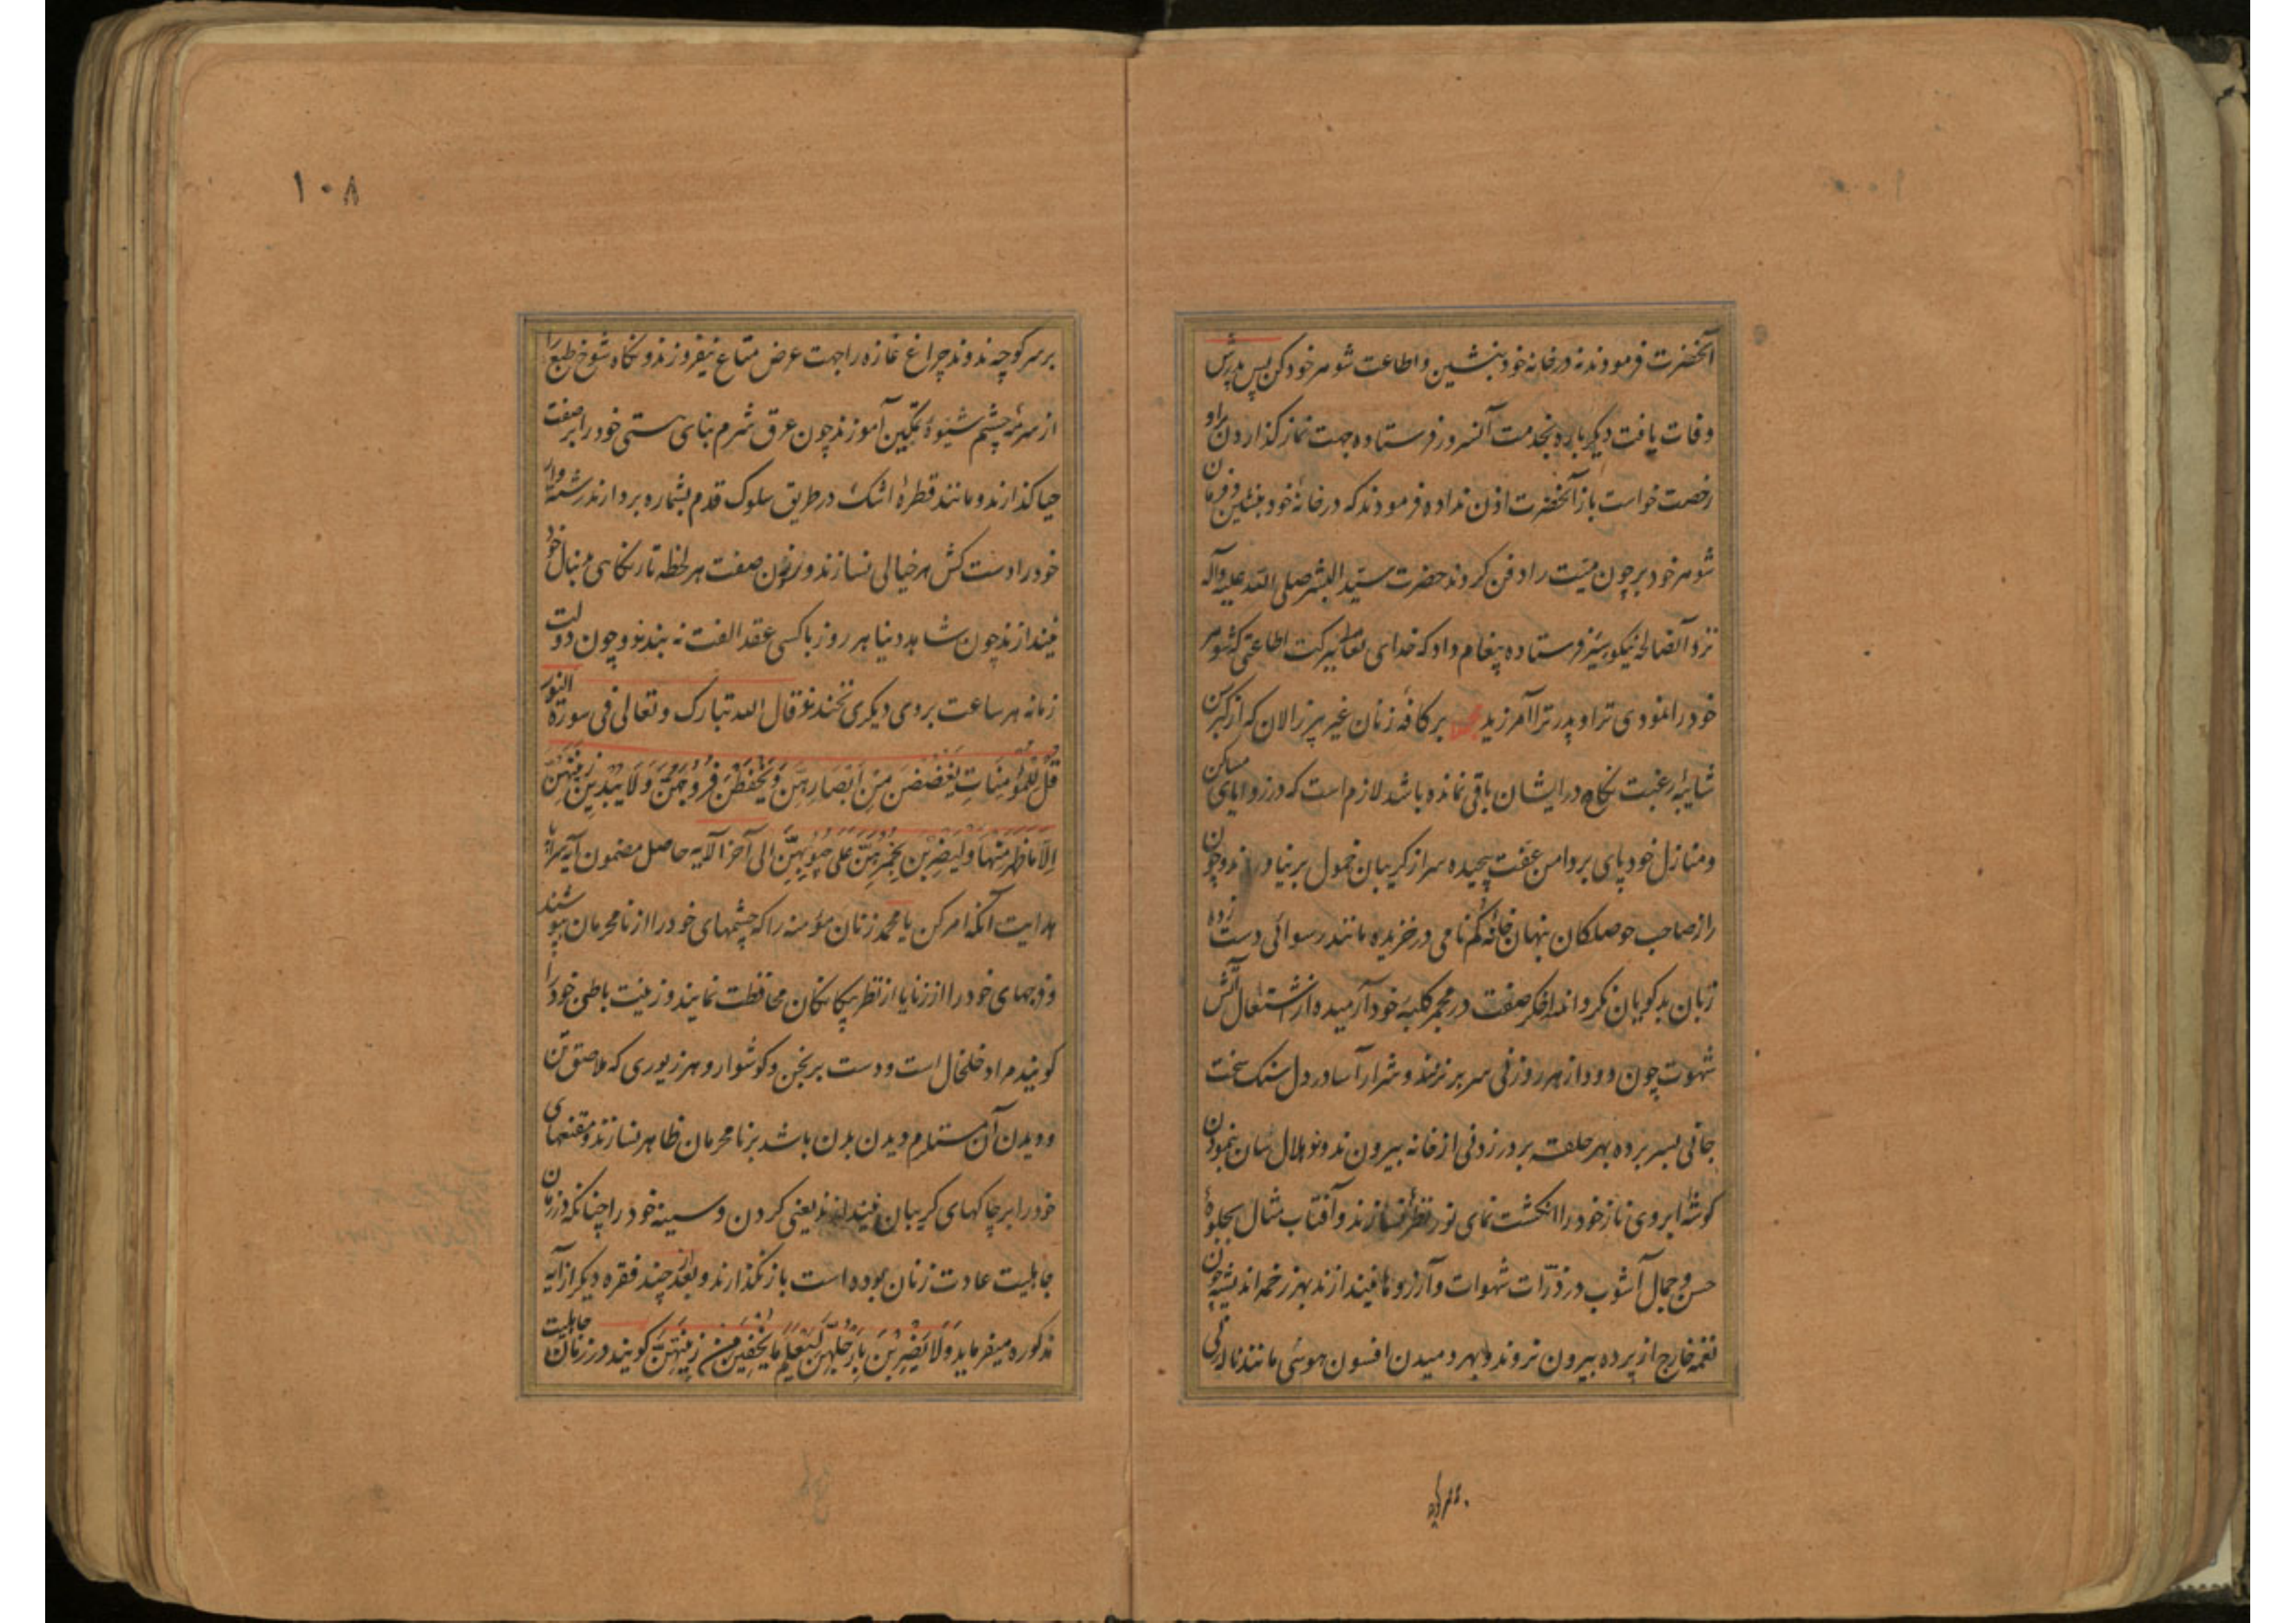 آنحضرت فرمودند نه در خانه خود بنشین و اطاعت شوهر خود کن پس پدرش
وفات یافت دیگر باره بخدمت آنسرور فرستاده جهت نماز گذاردن براو
رخصت خواست باز آنحضرت اذن نداده فرمودند که در خانهٔ خود بنشین و فرمان
شوهر خود بر چون میّت را دفن کردند حضرت سیّد البشر صلی الله علیه وآله
نزد آنصالحه نیکو سیَر فرستاده پیغام داد که خدای تعالی ببرکت اطاعتی که شوهر
خود را نمودی ترا و پدر ترا آمرزید بر کافهٔ زنان غیر پیر زالان که از کبر سن
شایبهٔ رغبت نکاح در ایشان باقی نمانده باشد لازم است که در زوایای مساکن
و منازل خود پای بر دامن عفت پیچیده سر از گریبان خمول بر نیاورند و چون
راز صاحب حوصلگان پنهان خانهٔ گم نامی در خزیده مانند رسوائی دست زده
زبان بدگویان نگردانند اخگر صفت در مجمر کلبهٔ خود آرمیده از اشتعال آتش
شهوت چون دود از هر روزنی سر بر نزنند و شرار آسا در دل سنک سخت
جانی بسر برده بهر حلقه بر در زدنی از خانه بیرون ندوند و هلال سان بنمودن
گوشهٔ ابروی ناز خود را انگشت نمای نور نظر نسازند و آفتاب مثال بجلوهٔ
حسن و جمال آشوب در ذرّات شهوات و آرزوها نیندازند بهر زخمه اندیشه چون
نغمه خارج از پرده بیرون نروند و بهر دمیدن افسون هوسی مانند ناله نی
بر سر کوچه ندوند چراغ غازه را جهت عرض متاع نیفروزند و نگاه شوخ طبع را
از سرمهٔ چشم شیوهٔ تمکین آموزند چون عرق شرم بنای هستی خود را بر صفت
حیا گذارند و مانند قطرهٔ اشک در طریق سلوک قدم بشماره بردارند رشته وار
خود را دست کش هر خیالی نسازند و صفت هر لحظه تار نگاهی دنبال خود
نیندازند چون شاهد دنیا هر روز با کسی عقد الفت نه بندند و چون دولت
زمانه هر ساعت بروی دیگری نخندند قال الله تبارک و تعالی فی سورة النور
قُل لِلمُؤمِنَاتِ یَغضُضنَ مِن اَبصَارِهِنَّ وَیَحفَظنَ فُرُوجَهُنَّ وَلَا یُبدِینَ زِینَتَهُنَّ
اِلَّا مَا ظَهَرَ مِنهَا وَلیَضرِبنَ بِخُمُرِهِنَّ عَلَی جُیُوبِهِنَّ الی آخر الآیه حاصل مضمون آیه سرا پا
هدایت آنکه امر کن یا محمد زنان مؤمنه را که چشمهای خود را از نامحرمان بپوشند
و فرجهای خود را از زنا یا از نظر بیکانکان محافظت نمایند و زینت باطنی خود را
گویند مراد خلخال است و دست برنجن و گوشوار و هر زیوری که ملاصق تن
و دیدن آن مستلزم دیدن بدن باشد بر نامحرمان ظاهر نسازند و مقنعهای
خود را بر چاکهای گریبان نیندازند یعنی گردن و سینه خود را چنانکه در زمان
جاهلیت عادت زنان بوده است باز نگذارند و بعد از چند فقره دیگر از آیه
مذکوره میفرماید وَلَا یَضرِبنَ بِاَرجُلِهِنَّ لِیُعلَمَ مَا یُخفِینَ مِن زِینَتِهِنَّ گویند در زمان جاهلیت
۱۰۸
بر سر کوچه